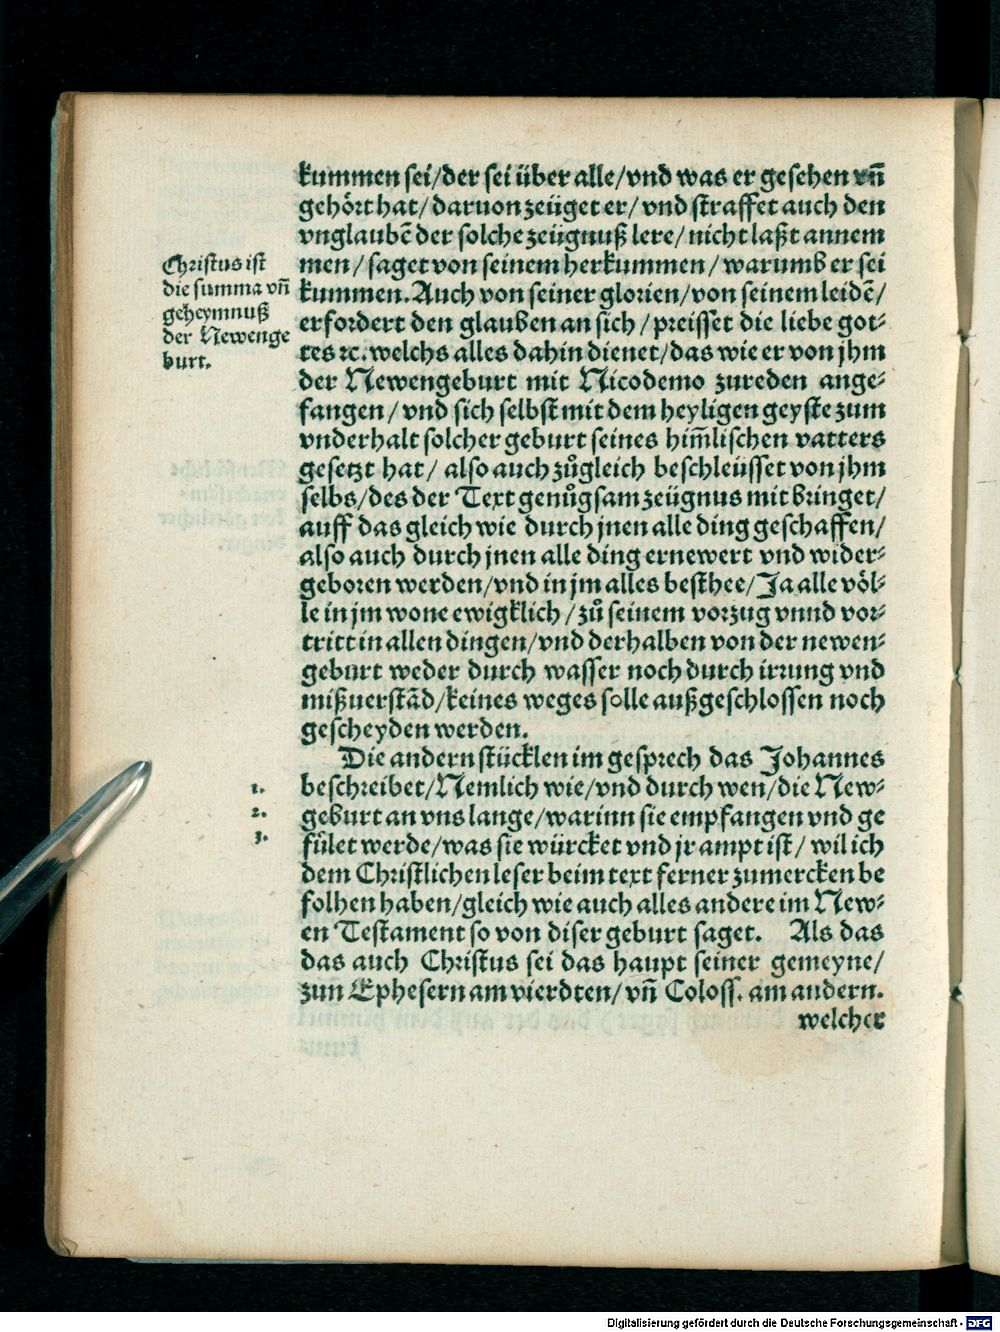 kummen sei/der sei über alle/vnd was er gesehen vñ
gehört hat/ daruon zeüget er/ vnd straffet auch den
vnglaubẽ der solche zeügnuß lere/ nicht laßt annem
men/ saget von seinem herkummen/ warumb er sei
kummen. Auch von seiner glorien/von seinem leidẽ/
erfordert den glauben an sich/preisset die liebe got⸗
tes ꝛc. welchs alles dahin dienet/das wie er von jhm
der Newengeburt mit Nicodemo zureden ange⸗
fangen/ vnd sich selbst mit dem heyligen geyste zum
vnderhalt solcher geburt seines him̃lischen vatters
gesetzt hat/ also auch zůgleich beschleüsset von jhm
selbs/des der Text genůgsam zeügnus mit bringet/
auff das gleich wie durch jnen alle ding geschaffen/
also auch durch jnen alle ding ernewert vnd wider⸗
geboren werden/vnd in jm alles besthee/Ja alle völ⸗
le in jm wone ewigklich/zů seinem vorzug vnnd vor⸗
tritt in allen dingen/vnd derhalben von der newen⸗
geburt weder durch wasser noch durch irrung vnd
mißuerstãd/keines weges solle außgeschlossen noch
gescheyden werden.
Christus ist
die summa vñ
geheymnuß
der Newenge
burt.
Die andern stücklen im gesprech das Johannes
1. beschreibet/Nemlich wie/vnd durch wen/die New⸗
2. geburt an vns lange/warinn sie empfangen vnd ge
3. fület werde/was sie würcket vnd jr ampt ist/ wil ich
dem Christlichen leser beim text ferner zumercken be
folhen haben/gleich wie auch alles andere im New⸗
en Testament so von diser geburt saget. Als das
das auch Christus sei das haupt seiner gemeyne/
zun Ephesern am vierdten/vñ Coloss. am andern.
welcher
Digitalisierung gefördert durch die Deutsche Forschungsgemeinschaft - DFG